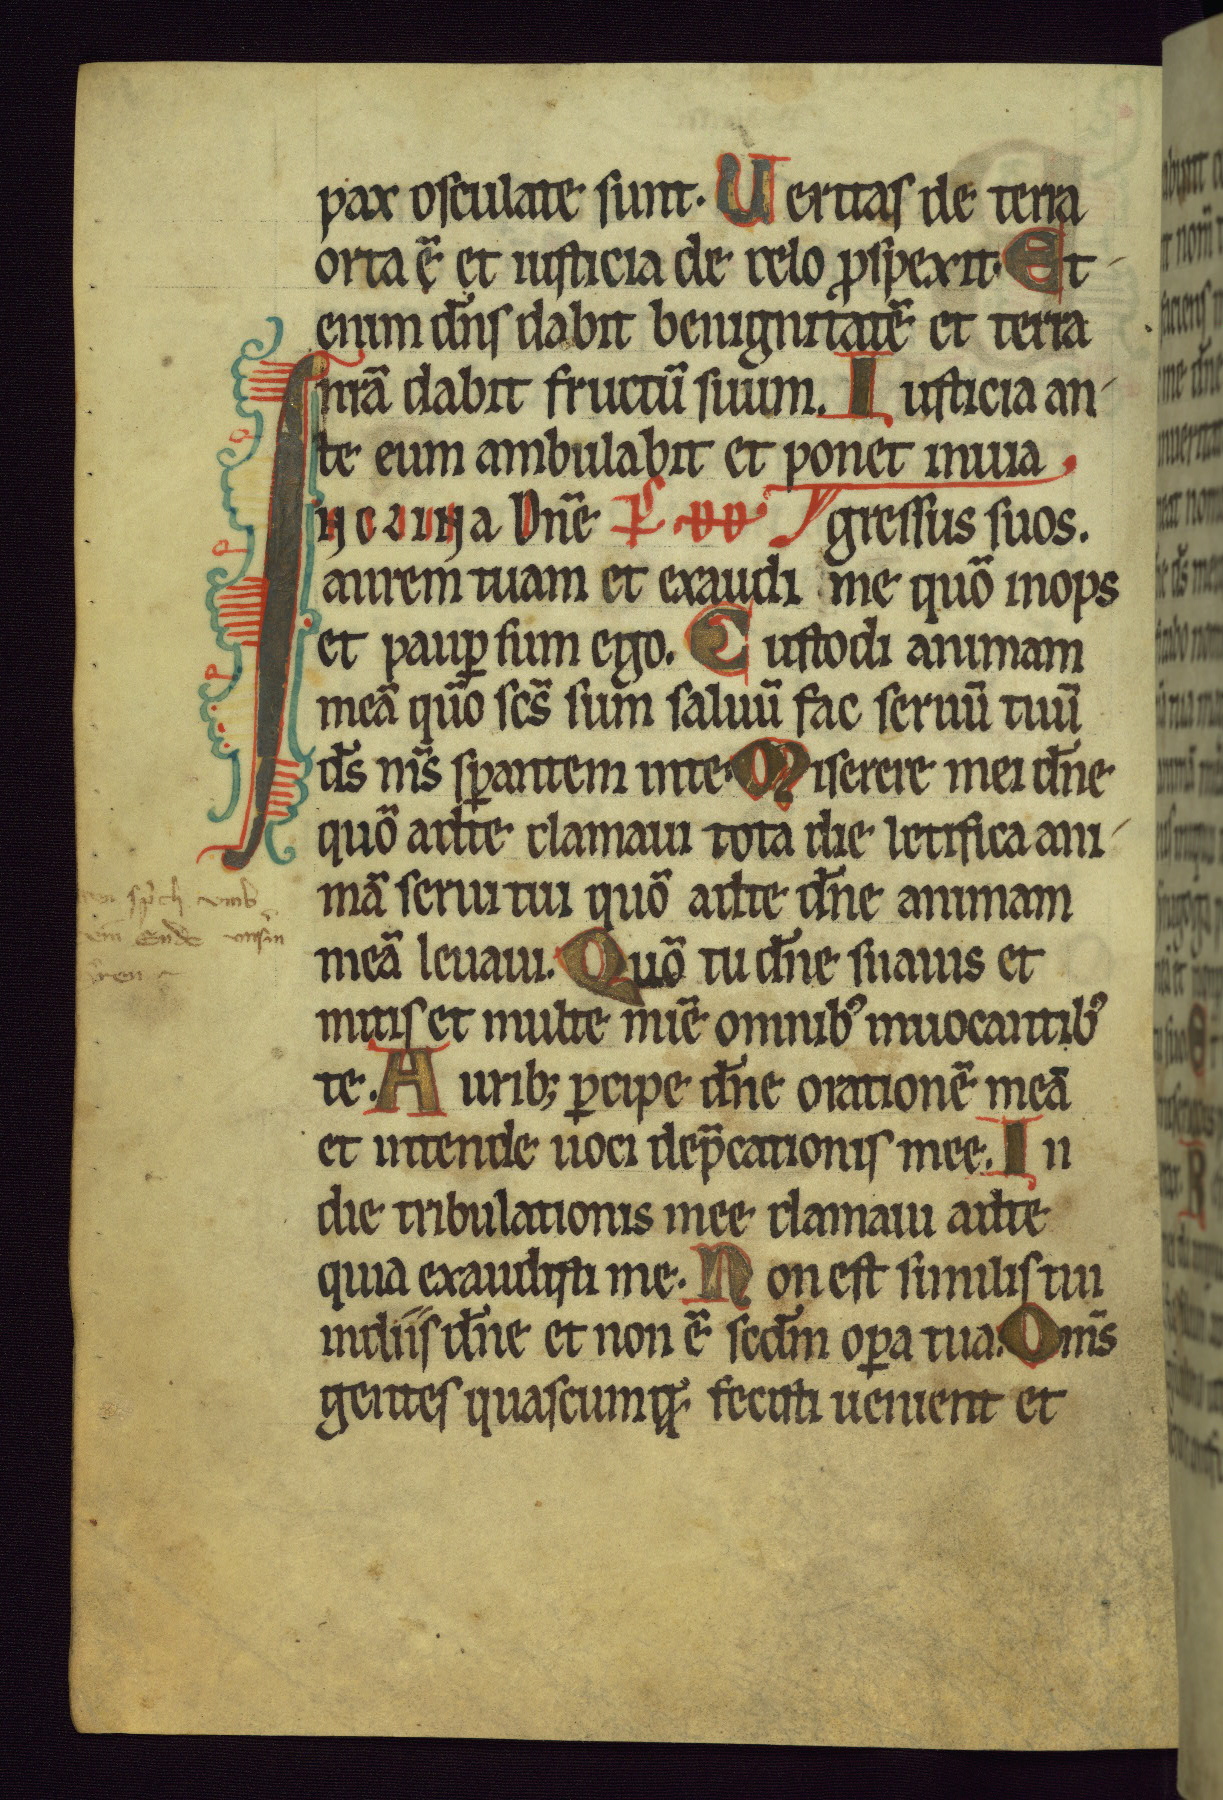 pax osculate sunt. Ueritas de terra
orta ē et iusticia de celo ꝓspexit. Et
enim dn̄s dabit benignitatē et terra
nr̄a dabit fructū suum. Iusticia an
te eum ambulabit et ponet in uia
Inclina Dn̄e gressus suos.
aurem tuam et exaudi me quō inops
et paup̲ sum ego. Custodi animam
meā quō scs̄ sum saluū fac seruū tuū
ds̄ ms̄ sꝑantem in te. Miserere mei dn̄e
quō ad te clamaui tota die letifica ani
mā serui tui quō ad te dn̄e animam
meā leuaui. Quō tu dn̄e suauis et
mitis et multe mīe omnibꝰ inuocantibꝰ
te. Auribꝫ ꝑcipe dn̄e orationē meā
et intende uoci dep̄cationis mee. In
die tribulationis mee clamaui ad te
quia exaudisti me. Non est similis tui
in diis dn̄e et non ē scd̄m oꝑa tua. Om̄s
gentes quascumqꝫ fecisti uenient et